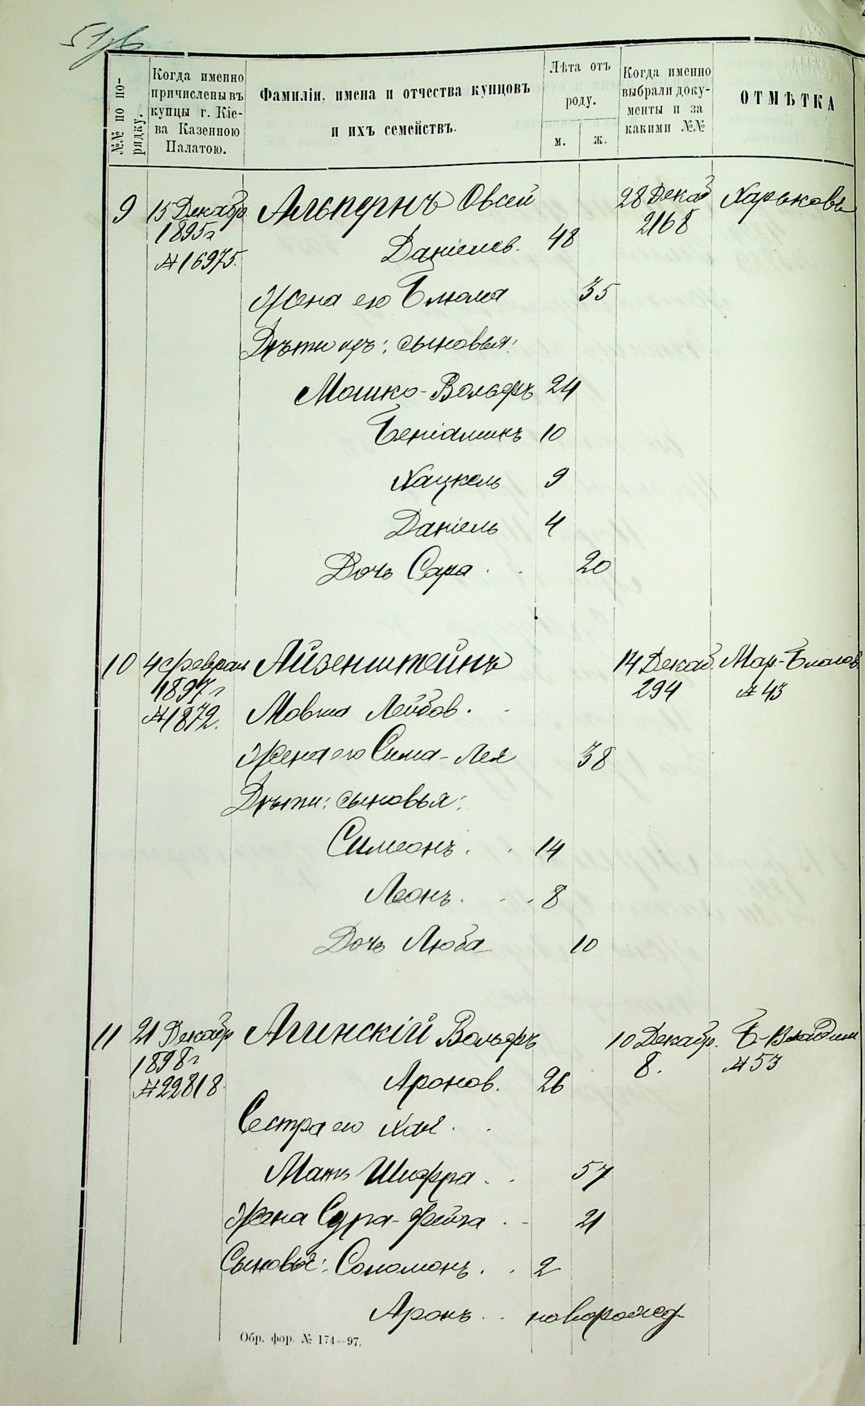 №№ по порядку.
Когда именно причислены въ купцы г. Кіева Казенною Палатою.
Фамиліи, имена и отчества купцовъ и ихъ семействъ.
Лѣта отъ роду.
м.
ж.
Когда именно выбрали документы и за какими №№
ОТМѢТКА
9 15 Декабр Альперинъ Овсей 28 Декаб Харьковъ
1895 г 2168
№ 16975. Даніелев. 48
Жена его Блюма 35
Дѣти ихъ: сыновья:
Мошко-Вольфъ 24
Беніаминъ 10
Хацкель 9
Даніель 4
Дочь Сара 20
10 4 феврал Айзенштейнъ 14 Декаб.
1897 г 294 № 43
№ 1872. Мовша Лейбов.
Жена его Сима-Лея 38
Дѣти: сыновья:
Симеонъ 14
Леонъ 8
Дочь Люба 10
11 21 Декабр Агинскій Вольфъ 10 Декабр.
1898 г 8. № 53
№ 22818 Аронов. 26
Сестра его Хая
Мать Шифра 57
Жена Сура-Фейга 21
Сыновья: Соломонъ 2
Аронъ новорожд
Обр. фор. № 174—97.